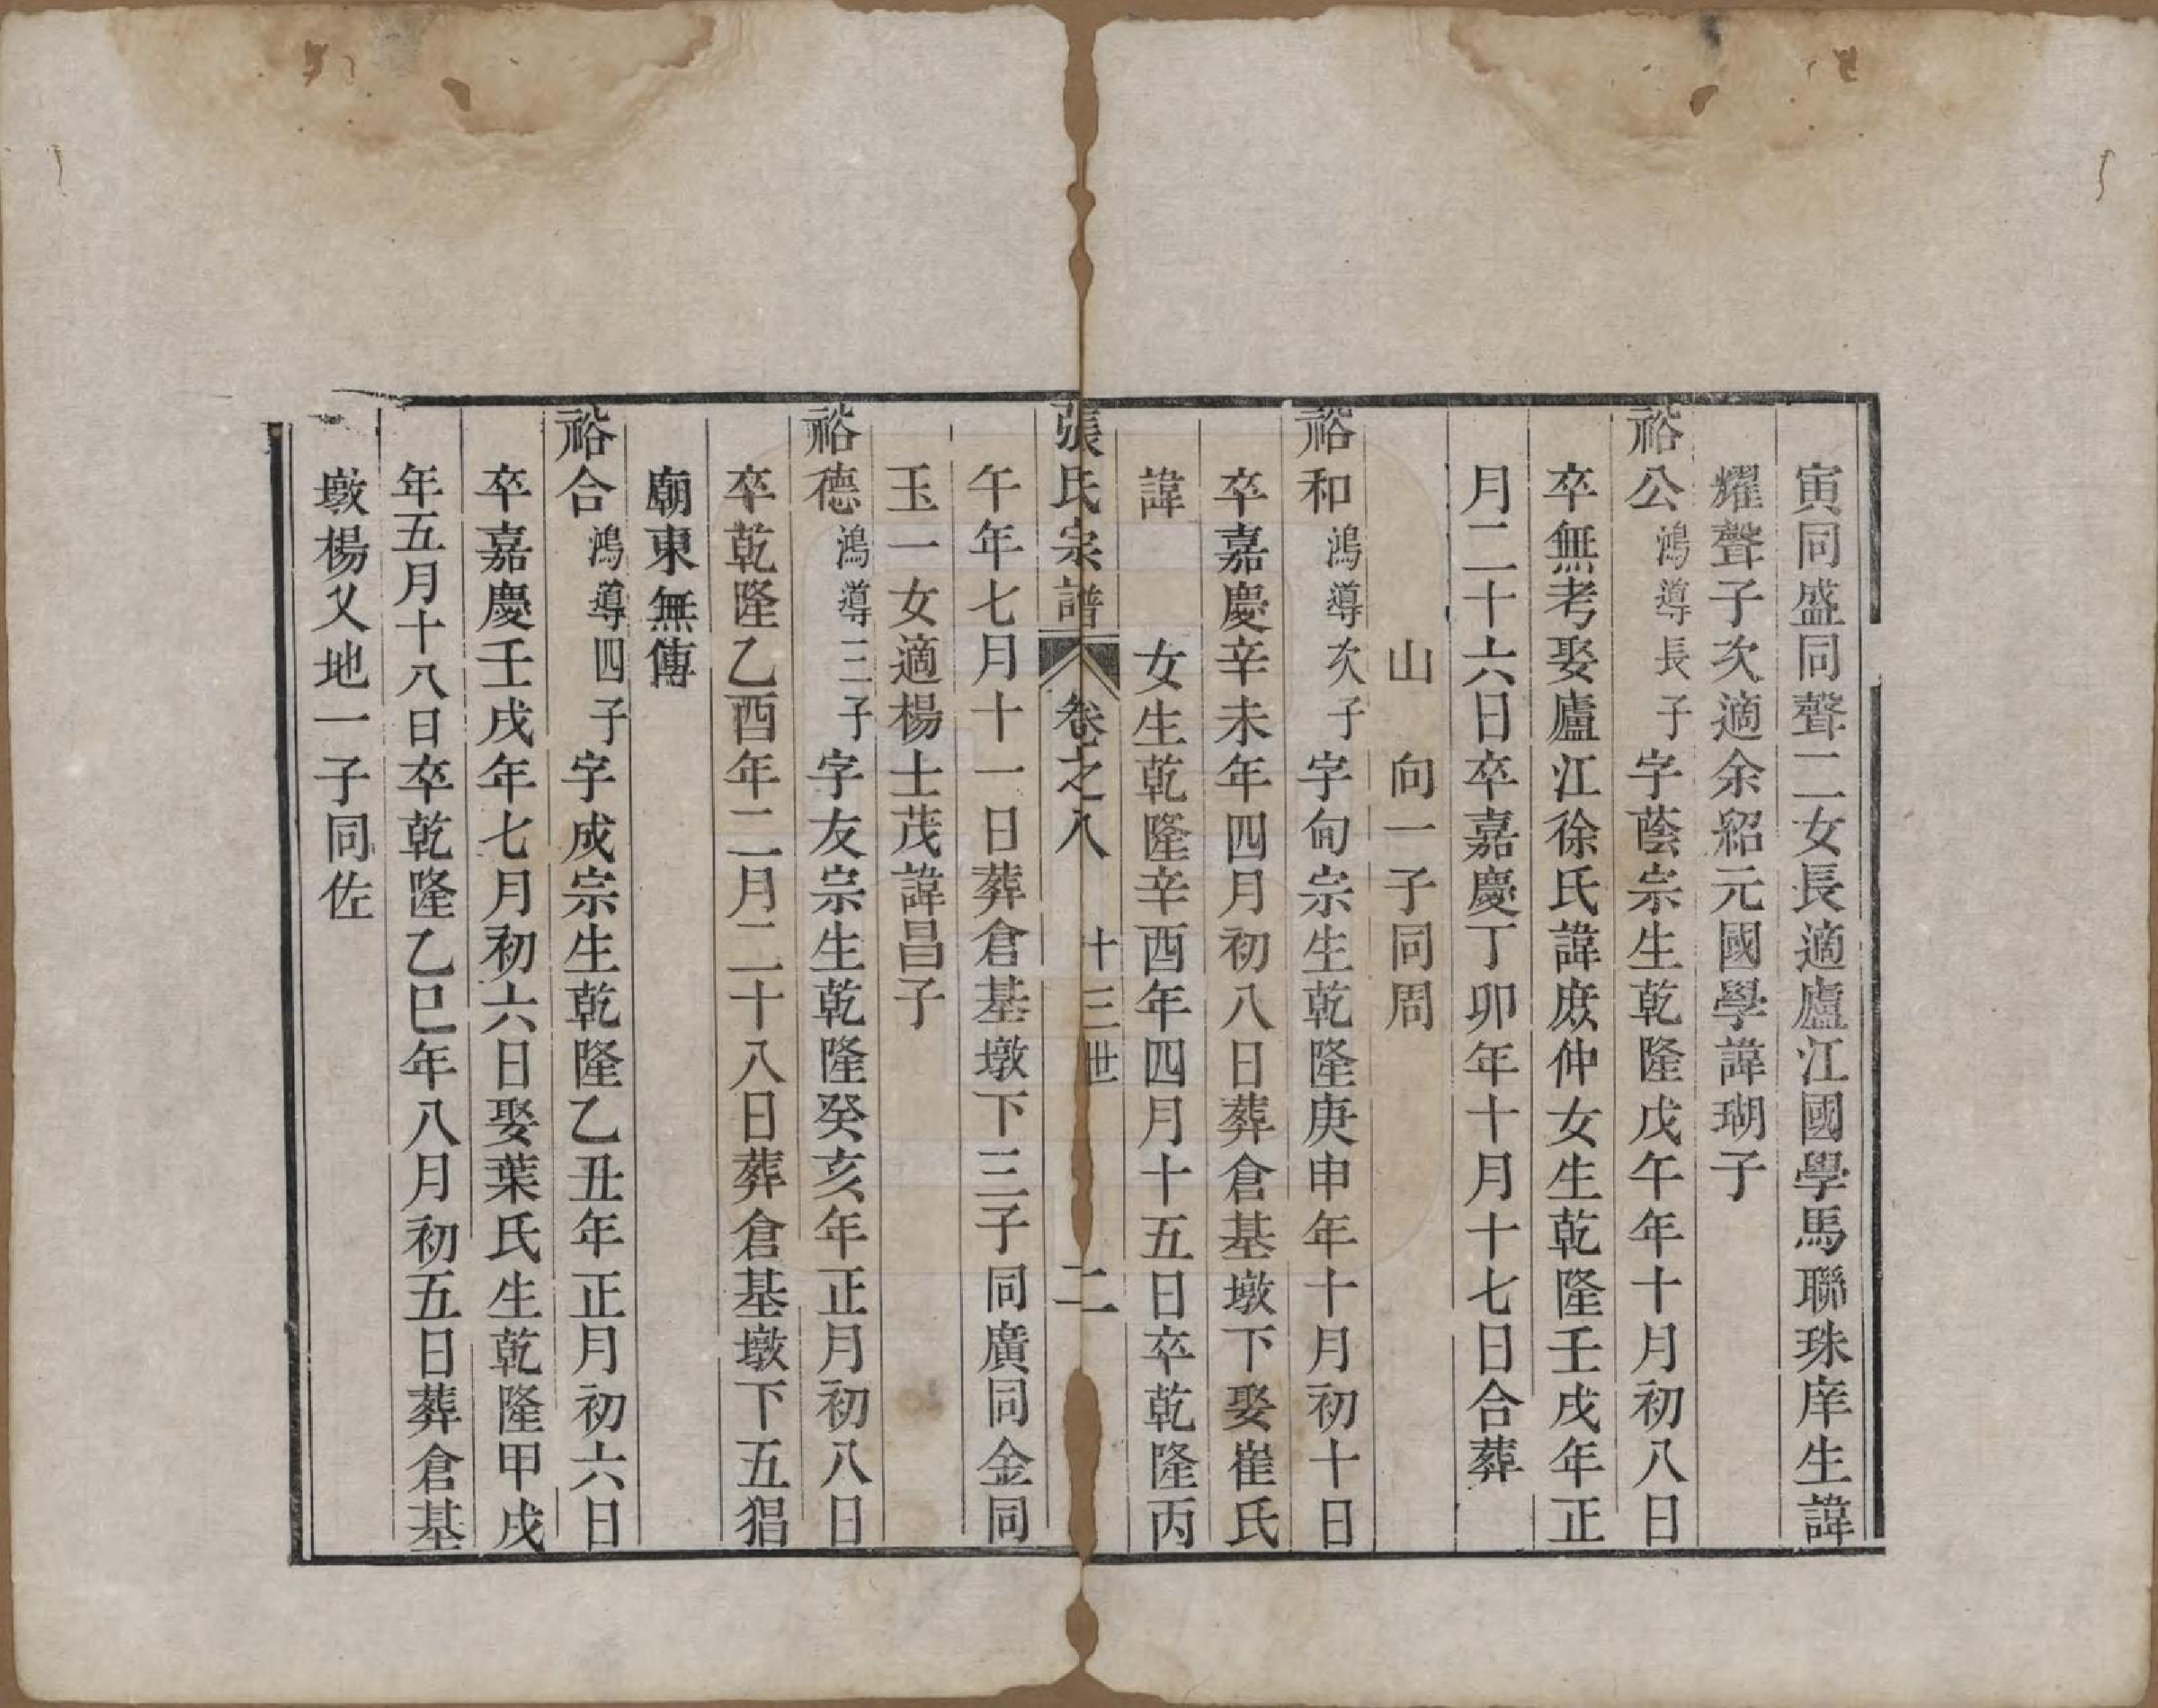 寅同盛同聲二女長適廬江國學馬聯珠庠生諱
耀聲子次適余紹元國學諱瑚子
裕公鴻導長子字蔭宗生乾隆戊午年十月初八日
卒無考娶廬江徐氏諱庶仲女生乾隆壬戌年正
月二十六日卒嘉慶丁卯年十月十七日合葬
山　向一子同周
裕和鴻導次子字甸宗生乾隆庚申年十月初十日
卒嘉慶辛未年四月初八日葬倉基墩下娶崔氏
諱　　女生乾隆辛酉年四月十五日卒乾隆丙
張氏宗譜　卷之八　十三世　二
午年七月十一日葬倉基墩下三子同廣同金同
玉一女適楊士茂諱昌子
裕德鴻導三子字友宗生乾隆癸亥年正月初八日
卒乾隆乙酉年二月二十八日葬倉基墩下五猖
廟東無傳
裕合鴻導四子字成宗生乾隆乙丑年正月初六日
卒嘉慶壬戌年七月初六日娶葉氏生乾隆甲戌
年五月十八日卒乾隆乙巳年八月初五日葬倉基
墩楊乂地一子同佐